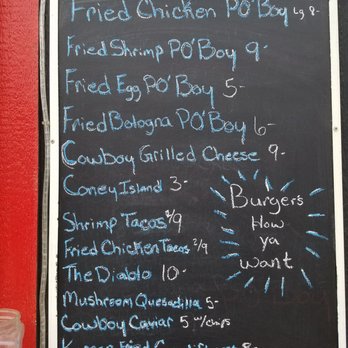 Fried Chicken PO'Boy Lg 8-
Fried Shrimp PO'Boy 9-
Fried Egg PO'Boy 5-
Fried Bologna PO'Boy 6-
Cowboy Grilled Cheese 9-
Coney Island 3-
Shrimp Tacos 2/9
Fried Chicken Tacos 2/9
The Diablo 10-
Mushroom Quesadilla 5-
Cowboy Caviar 5 w/chips
Fried
Burgers
How
ya
want